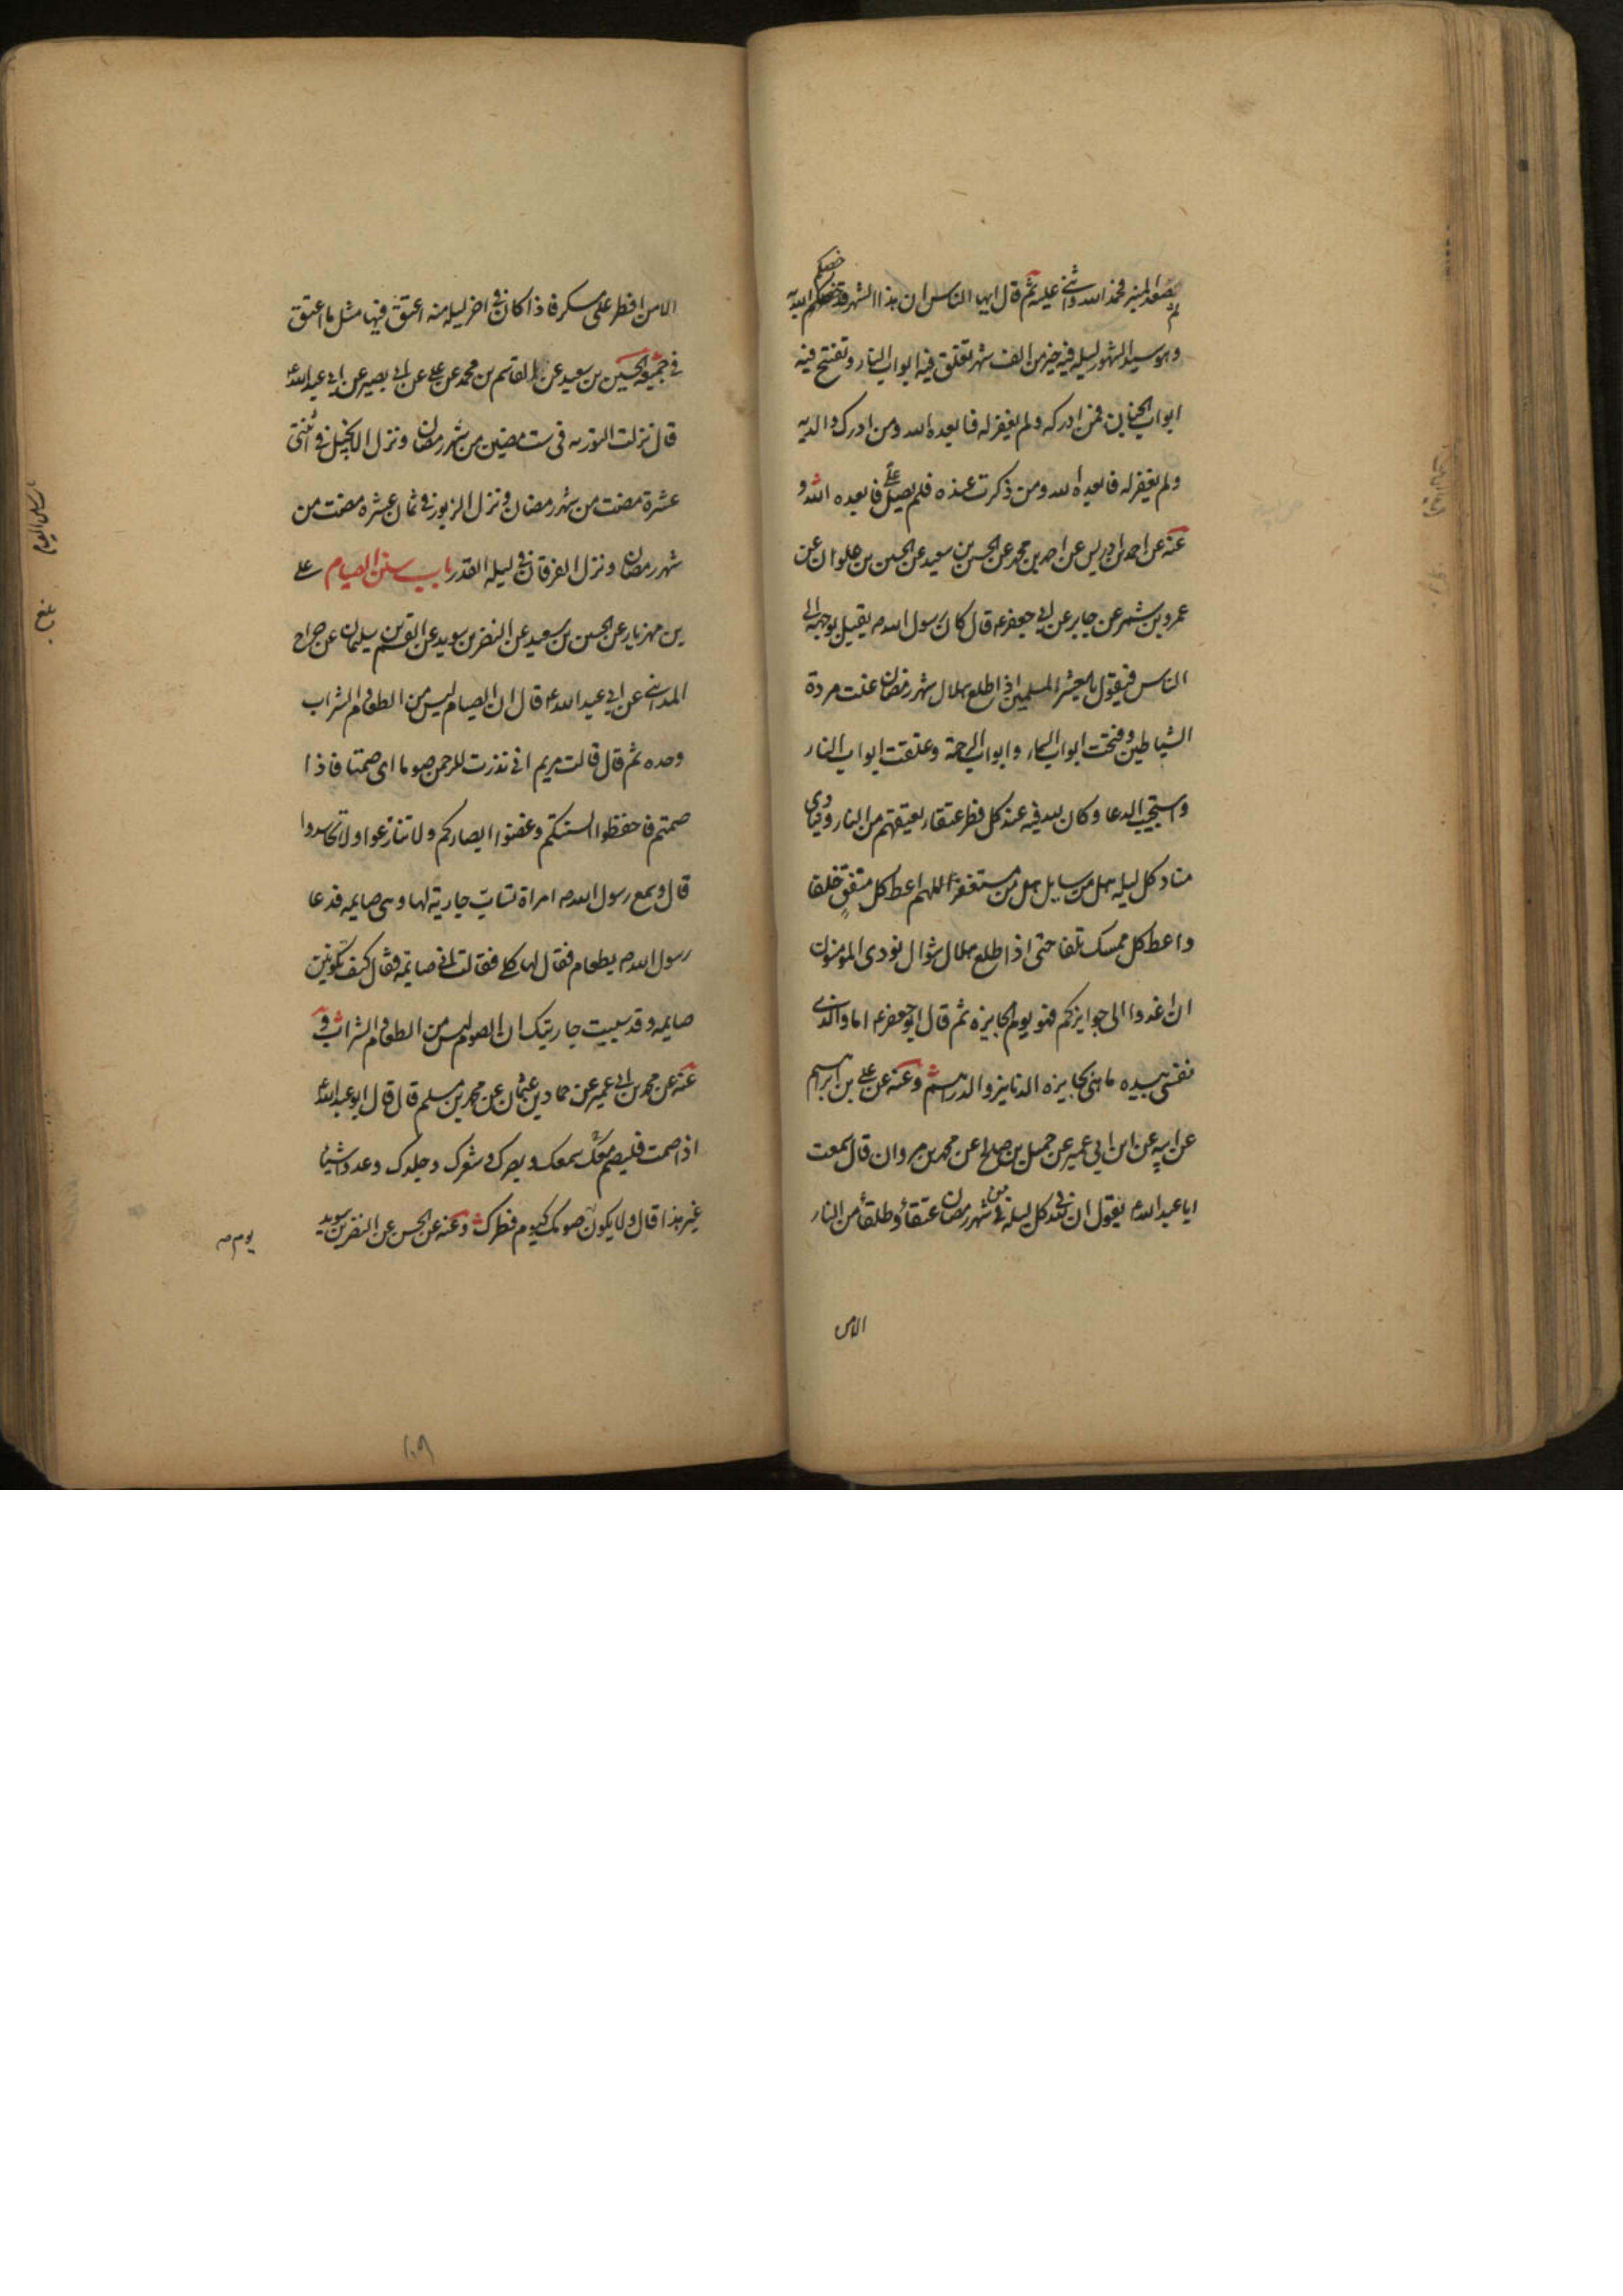 صعد المنبر فحمد الله واثنى عليه ثم قال ايها الناس ان هذا الشهر قد خصكم الله به
وهو سيد الشهور ليلة فيه خير من الف شهر تغلق فيه ابواب النار وتفتح فيه
ابواب الجنان فمن ادركه ولم يغفر له فابعده الله ومن ادرك والديه
ولم يغفر له فابعده الله ومن ذكرت عنده فلم يصل على فابعده الله و
عنه عن احمد بن ادريس عن احمد بن محمد عن الحسين بن سعيد عن الحسين بن علوان عن
عمرو بن شمر عن جابر عن ابى جعفر ع قال كان رسول الله ص يقبل بوجهه الى
الناس فيقول يا معشر المسلمين اذا طلع هلال شهر رمضان غلت مردة
الشياطين وفتحت ابواب السماء وابواب الرحمة وغلقت ابواب النار
واستجيب الدعا وكان لله فيه عند كل فطر عتقاء يعتقهم من النار وينادى
مناد كل ليله هل من سايل هل من مستغفر اللهم اعط كل منفق خلفا
واعط كل ممسك تلفا حتى اذا طلع هلال شوال نودى المومنون
ان اغدوا الى جوايزكم فهو يوم الجايزه ثم قال ابو جعفر ع اما والذى
نفسى بيده ما هى بجايزه الدنانير والدراهم وعنه عن على بن ابرهيم
عن ابيه عن ابن ابى عمير عن جميل بن صالح عن محمد بن مروان قال سمعت
ابا عبد الله ع يقول ان لله فى كل ليلة من شهر رمضان عتقاء وطلقاء من النار
الا من
الا من افطر على مسكر فاذا كان فى اخر ليله منه اعتق فيها مثل ما اعتق
فى جميعه الحسين بن سعيد عن القاسم بن محمد عن على عن ابى بصير عن ابى عبد الله ع
قال نزلت التوريه فى ست مضين من شهر رمضان ونزل الانجيل فى اثنتى
عشرة مضت من شهر رمضان ونزل الزبور فى ثمان عشره مضت من
شهر رمضان ونزل الفرقان فى ليله القدر باب سنن الصيام على
بن مهزيار عن الحسين بن سعيد عن النضر بن سويد عن القسم بن سليمان عن جراح
المداينى عن ابى عبد الله ع قال ان الصيام ليس من الطعام والشراب
وحده ثم قال قالت مريم انى نذرت للرحمن صوما اى صمتا فاذا
صمتم فاحفظوا السنتكم وغضوا ابصاركم ولا تنازعوا ولا تحاسدوا
قال وسمع رسول الله ص امراة تساب جارية لها وهى صايمه فدعا
رسول الله ص بطعام فقال لها كلى فقالت انى صايمة فقال كيف تكونين
صايمه وقد سببت جاريتك ان الصوم ليس من الطعام والشراب و
عنه عن محمد بن ابى عمير عن حماد بن عثمان عن محمد بن مسلم قال قال ابو عبد الله ع
اذا صمت فليصم معك سمعك وبصرك وشعرك وجلدك وعدد اشياء
غير هذا قال ولا يكون صومك كيوم فطرك وعنه عن الحسين عن النضر بن سويد
باب سنن الصيام
بلغ
١٠٩